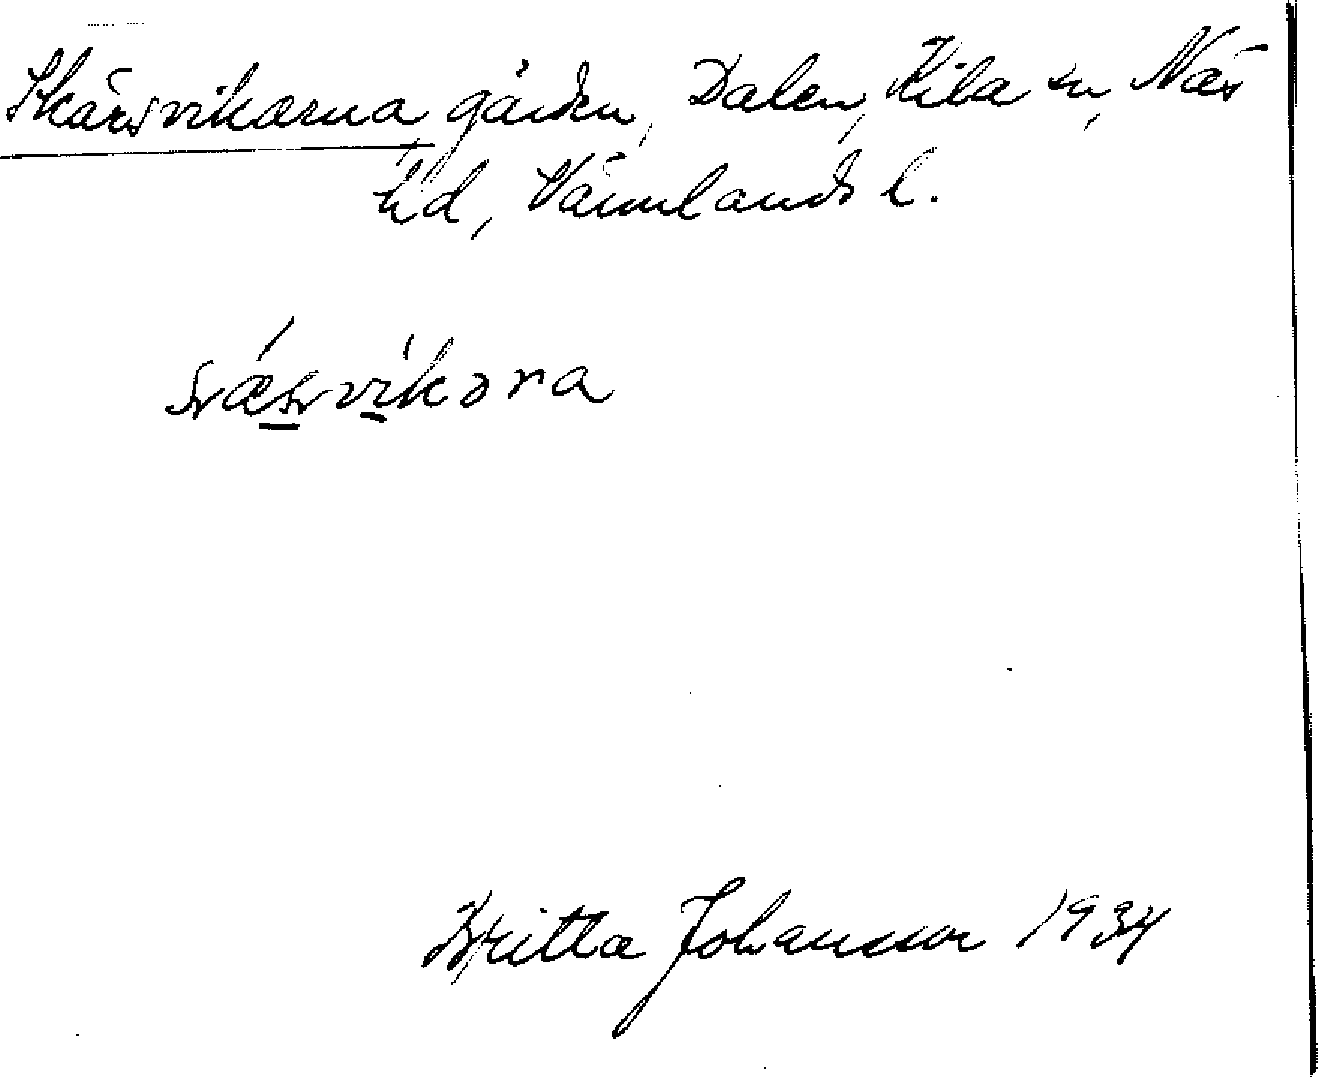 Skärsvikarna gården, Dalen, Kila sn, Näs
hd, Värmlands l.
Britta Johansson 1934